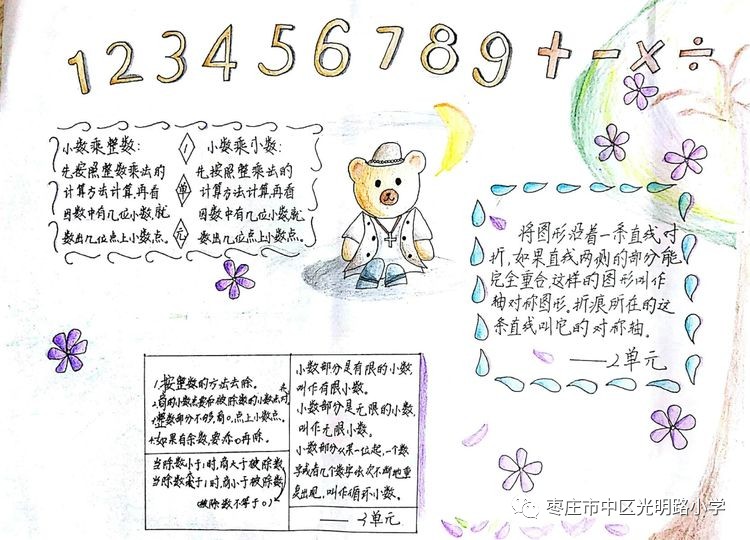 1 2 3 4 5 6 7 8 9 + - × ÷
小数乘整数:
先按照整数乘出的
计算方法计算,再看
因数中有几位小数,就
数出几位点上小数点。
1
单
元
小数乘小数:
先按照整数乘出的
计算方法计算,再看
因数中有几位小数就
数出几位点上小数点。
将图形沿着一条直线对
折,如果直线两侧的部分能
完全重合,这样的图形叫作
轴对称图形,折痕所在的这
条直线叫它的对称轴。
——2单元
1.按整数的方法去除。
2.商的小数点要和被除数的小数点对齐
3.整数部分不够,商0,点上小数点。
4.如果有余数,要添0再除。
当除数小于1时,商大于被除数
当除数大于1时,商小于被除数
(被除数不等于0)
小数部分是有限的小数
叫作有限小数。
小数部分是无限的小数,
叫作无限小数。
小数部分从某一位起,一个数
字或者几个数字依次不断地重
复出现,叫作循环小数。
——3单元
枣庄市中区光明路小学